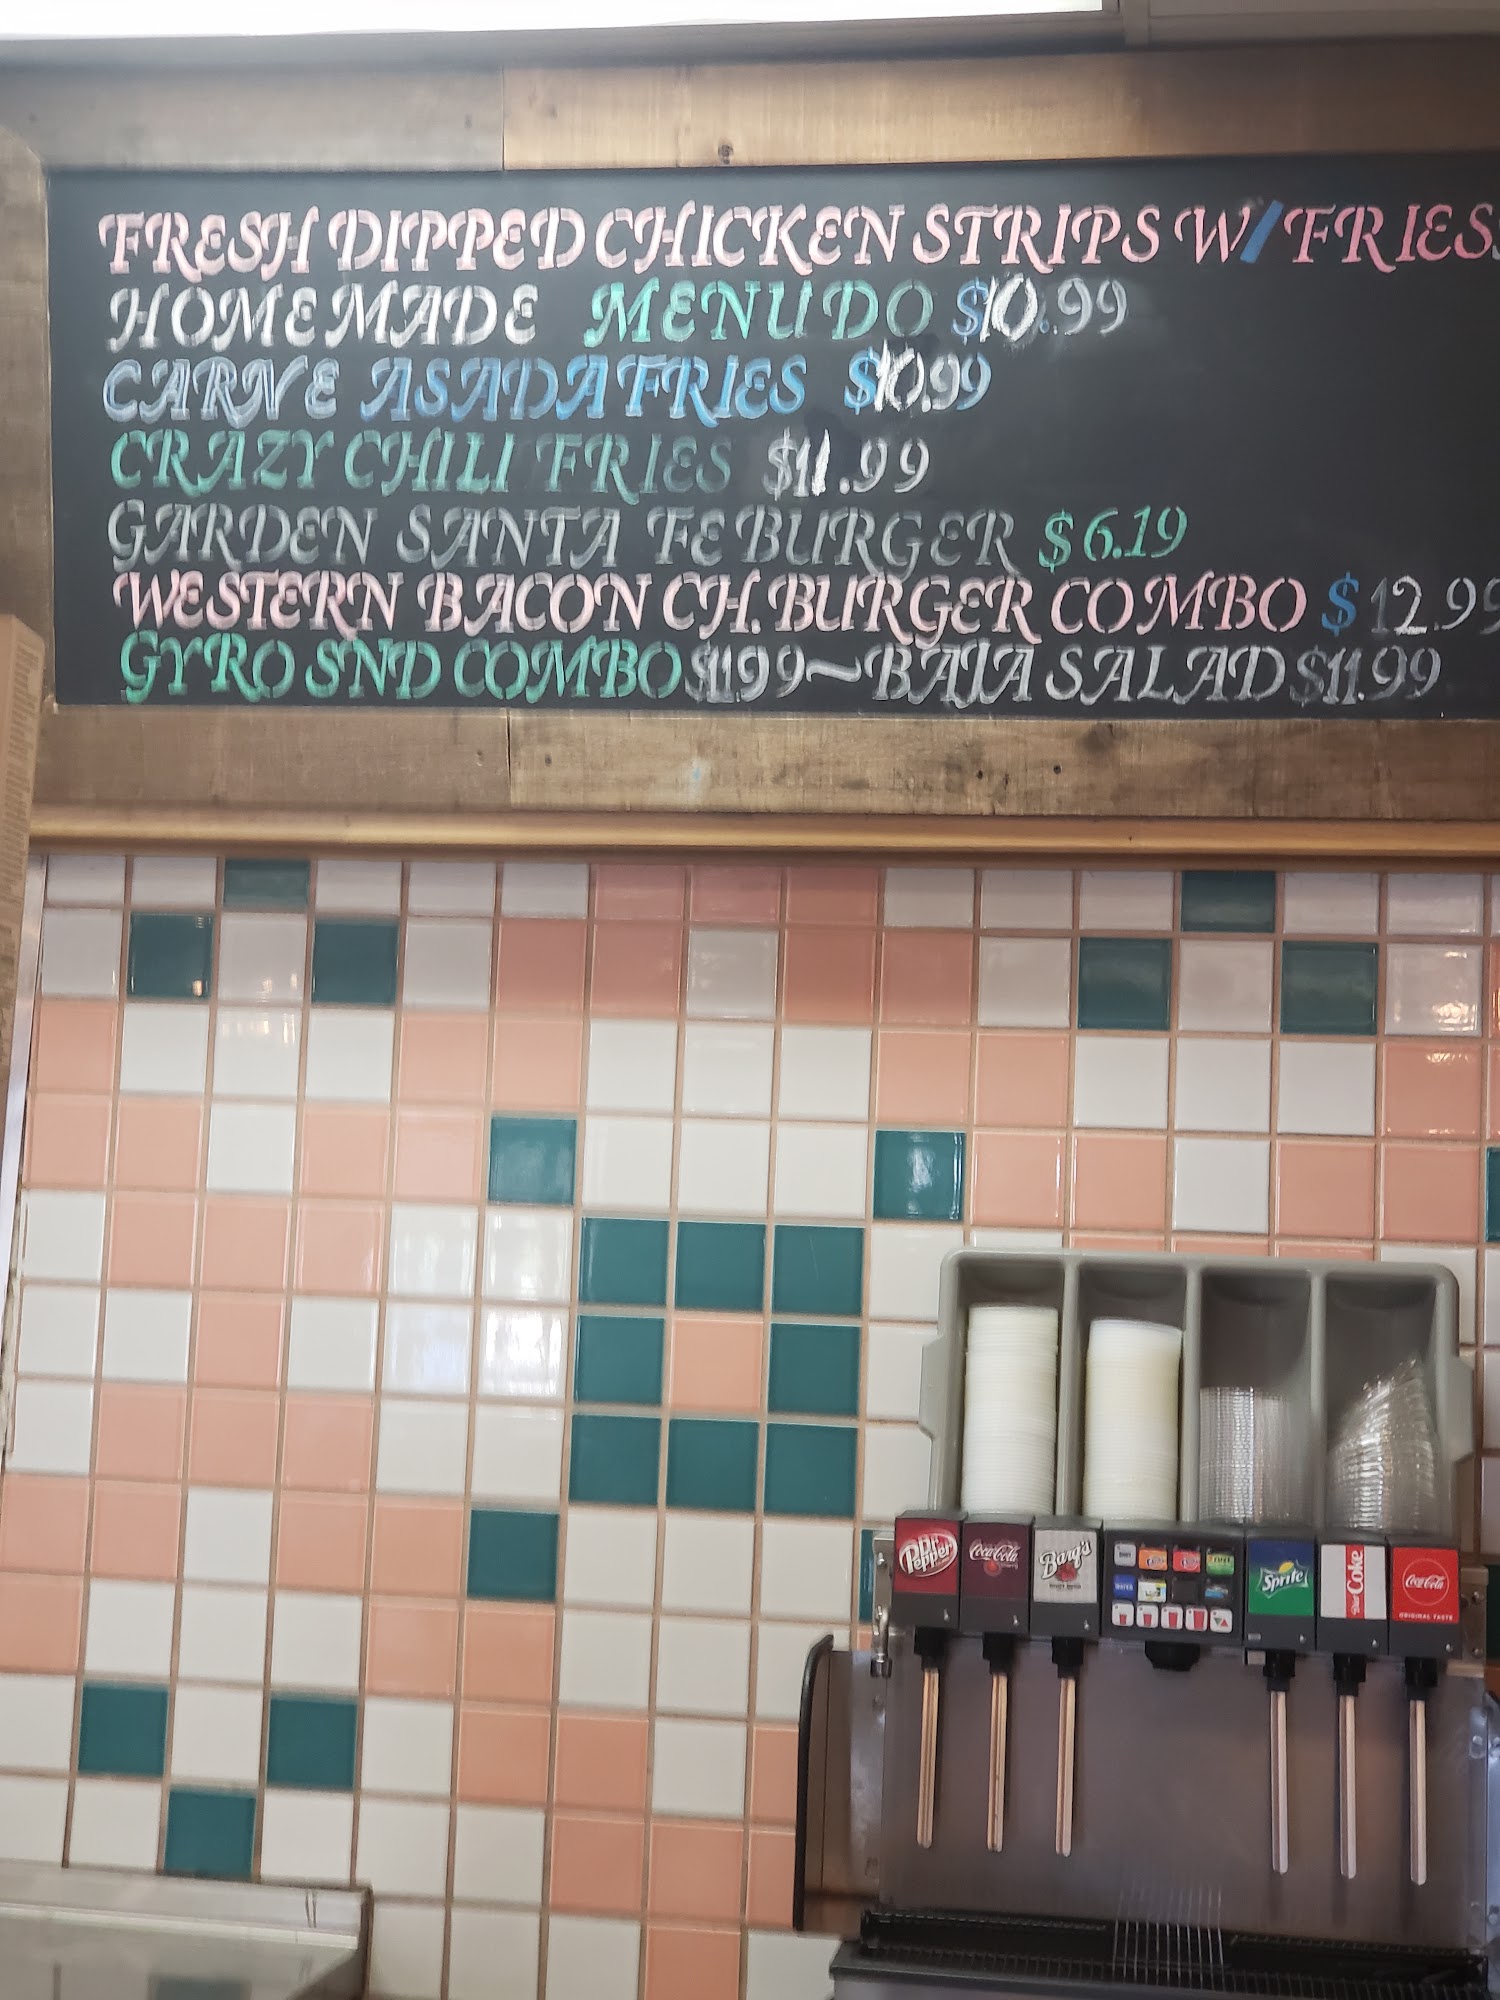 FRESH DIPPED CHICKEN STRIPS W/FRIES
HOMEMADE MENUDO $10.99
CARNE ASADA FRIES $10.99
CRAZY CHILI FRIES $11.99
GARDEN SANTA FE BURGER $6.19
WESTERN BACON CH. BURGER COMBO $12.99
GYRO SND COMBO $11.99~BAJA SALAD $11.99
Dr Pepper
Coca-Cola
Barq's
Sprite
Diet Coke
Coca-Cola
ORIGINAL TASTE